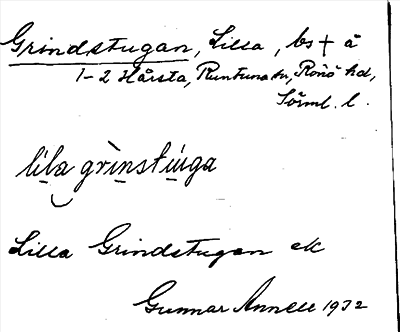 Grindstugan, Lilla, bs † å
1-2 Hårsta, Runtuna sn, Rönö hd,
Sörml. l.
li̱la gri̱nstu̱ga
Lilla Grindstugan ek
Gunnar Annell 1932